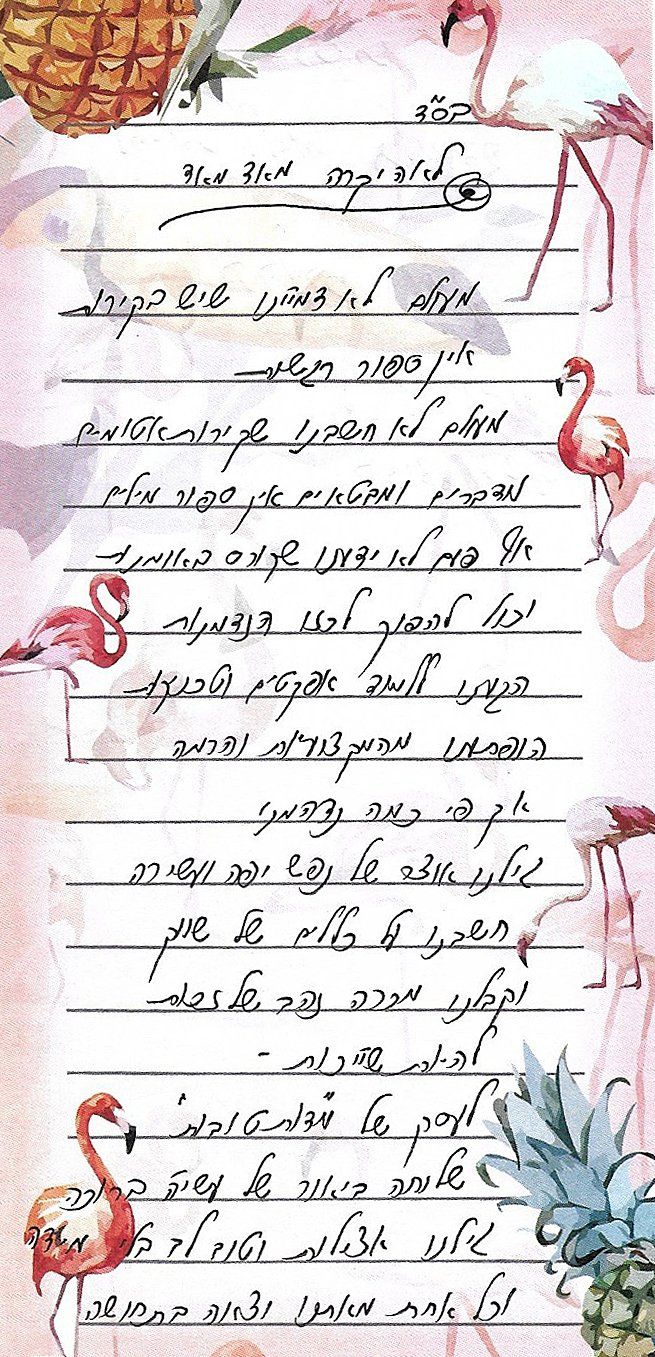 בס"ד
לאה יקרה מאוד מאוד
מעולם לא דמיינו שיש בקירות
אין ספור רגשות
מעולם לא חשבנו שקירות אטומים
מדברים ומבטאים אין ספור מילים
אף פעם לא ידענו שקורס באומנות
יכול להפוך לכזו הזדמנות
הגענו ללמוד אפקטים וטכניקות
הופתענו מהמקצועיות והרמה
אך פי כמה נדהמנו
גילנו אוצר של נפש יפה ועשירה
חשבנו על כללים של שוק
וקבלנו מכרה זהב של זכות
להיות שייכות -
לעסק של "מדות טובות"
שלוחה ביאור של עשיה ברוכה
גילנו אצילות וטוב לב בלי מידה
וכל אחת מאתנו יצאה בתחושה